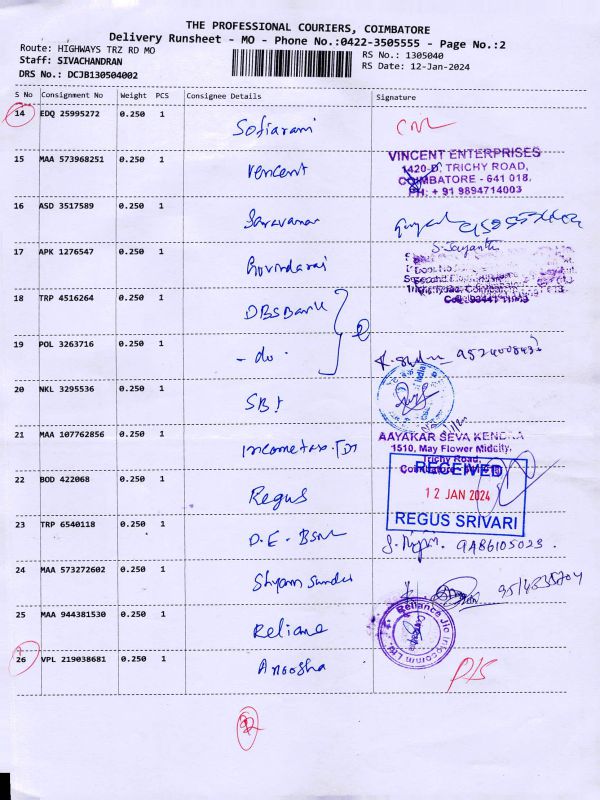 THE PROFESSIONAL COURIERS, COIMBATORE
Delivery Runsheet - MO - Phone No.:0422-3505555 - Page No.:2
Route: HIGHWAYS TRZ RD MO
Staff: SIVACHANDRAN
DRS No.: DCJB130504002
RS No.: 1305040
RS Date: 12-Jan-2024
S No Consignment No Weight PCS Consignee Details Signature
14 EDQ 25995272 0.250 1 Sofiarani
15 MAA 573968251 0.250 1 Vencent
VINCENT ENTERPRISES
1420-D, TRICHY ROAD,
COIMBATORE - 641 018.
PH: + 91 9894714003
16 ASD 3517589 0.250 1 Saravanan
17 APK 1276547 0.250 1 Govindaraj
S. Jayanthi
18 TRP 4516264 0.250 1 DBS Bank
19 POL 3263716 0.250 1 - do -
20 NKL 3295536 0.250 1 SBI
21 MAA 107762856 0.250 1 Incometax
AAYAKAR SEVA KENDRA
1510, May Flower Midcity,
Trichy Road,
22 BOD 422068 0.250 1 Regus
RECEIVED
12 JAN 2024
REGUS SRIVARI
23 TRP 6540118 0.250 1 D.E. BSNL
9486105023
24 MAA 573272602 0.250 1 Shyam Sunder
25 MAA 944381530 0.250 1 Reliance
Reliance Jio Infocomm Ltd.
26 VPL 219038681 0.250 1 Anoosha